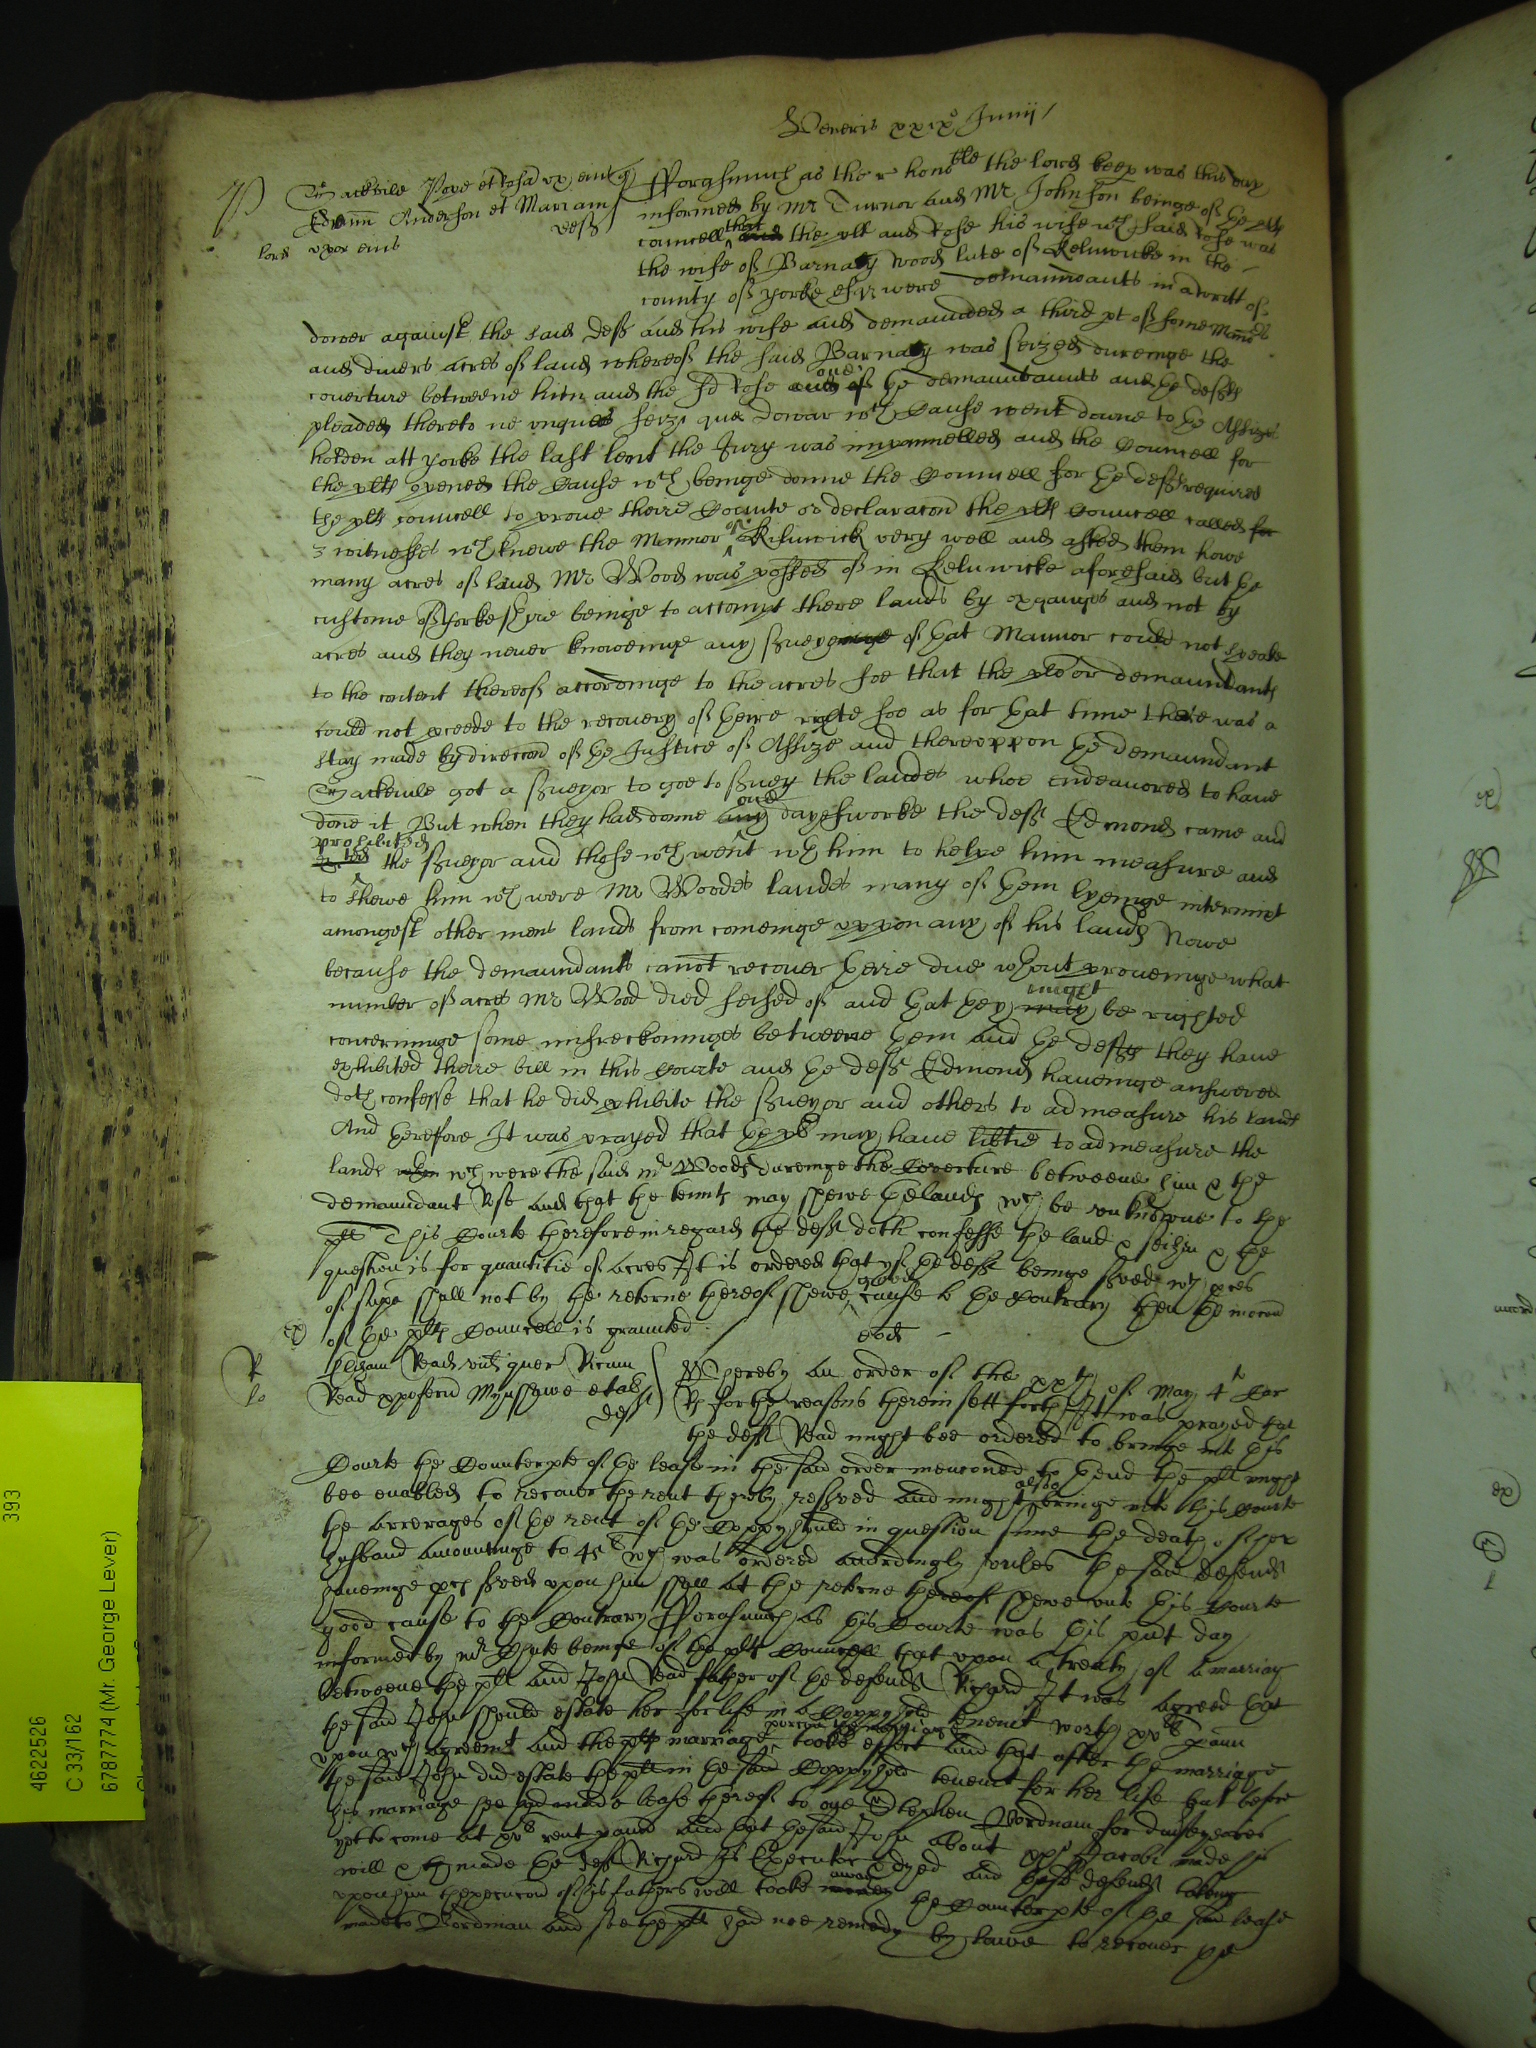 Veneris xxixo Junii
Sackvile Pope et Rosa ux eius q
Edm Anderson et Mariam
uxor eius deff
lord
Fforasmuch as the r honble the lord keep was this day
informed by Mr Turnor and Mr Johnson beinge of the plts
councell that the plt and Rose his wife wch said Rose was
the wife of Barnaby Wood late of Kelnwicke in the
county of Yorke esqr were demaundants in a writt of
dower against the said deft and his wife and demaunded a third pt of some Mannors
and divers acres of land whereof the said Barnaby was seized dureinge the
coverture betweene him and the sd Rose one of the demaundaunts and the defts
pleaded thereto ne unques seizi que dowar wch Cause went downe to the Assizes
holden att Yorke the last lent the Jury was impannelled and the Councell for
the plts opened the Cause wch beinge donne the Councell for the defts required
the plts councell to prove theire Counte or declaracon the plts Councell called for
3 witnesses wch knewe the Mannor of Kilnwick very well and asked them howe
many acres of land Mr Wood was possed of in Kelnwicke aforesaid but the
custome of Yorkeshire beinge to accompt there lands by oxganges and not by
acres and they never knoweinge any Survey of that Mannor could not speake
to the content thereof accordinge to the acres soe that the plts or demaundants
could not pceede to the recovery of theire righte soe as for that time there was a
stay made by direccon of the Justice of Assize and thereuppon the demaundant
Sackevile got a Surveyor to goe to Survey the landes whoe endeavored to have
done it But when they had donne one dayes worke the deft Edmond came and
prohibited the Surveyor and those wch went wth him to helpe him measure and
to shewe him wch were Mr Woodes landes many of them lyenge intermixt
amongest other mens lands from comeinge uppon any of his lands Nowe
because the demaundants cannot recover theire due wthout proveinge what
number of acres Mr Wood died seised of and that they might be righted
concerninge some misreckoninges betweene them and the defts they have
exhibited theire bill in this Courte and the deft Edmond haveinge answered
doth confesse that he did phibite the Surveyor and others to admeasure his lands
And therefore It was prayed that the plts may have libtie to admeasure the
lands wch were the said Mr Woods dureinge the Coverture betweene him & the
demaundant Rose and that the tennts may shewe the lands wch be unknowne to the
plts This Courte therefore in regard the deft doth confesse the land & seizin & the
question is for quantitie of acres It is ordered that yf the deft beinge served wth pces
of supa shall not by the retorne thereof shewe good cause to the Contrary then the mocon
of the plts Councell is graunted
eod
ex
R
lo
Elizam Read vid quer Ricum
Read deft
Whereby an order of the xxth of May 4 Car
R for the reasons therein sett forth It was prayed that
the deft Read might bee ordered to bringe into this
Courte the Counterpte of the lease in the said order menconed to thend the plt might
bee enabled to recover the rent thereby reserved and might also bringe into this Courte
the arrerages of the rent of the Coppyhould in question since the death of her
husband amountinge to 45l wch was ordered accordingly unles the said defendt
haveinge pces served upon him shall at the retorne thereof shewe unto this Courte
good cause to the Contrary Fforasmuch as this Courte was this pnt day
informed by Mr beinge of the plts Councell that upon a treaty of a marriag
betweene the plt and John Read father of the defendt Richard It was agreed that
the said John should estate her for life in a Coppyhold tenemt worth xvl p ann
upon wch agreemt and the plts marriage tooke effect and that after the marriage
the said John did estate the plt in the said Coppyhold tenemt for her life but before
his marriage he had made a lease thereof to one Stephen Bordman for divse yeares
yet to come at xvl rent p ann and that the said John about xxo Jacobi made his
will & made the deft Richard his Executor & dyed and the defendt takeing
upon him thexecucon of his fathers will tooke away the Counterpte of the said lease
made to Bordman and soe the plt had noe remedy by lawe to recover the
4622526 393
C 33/162
6787774 (Mr. George Lever)